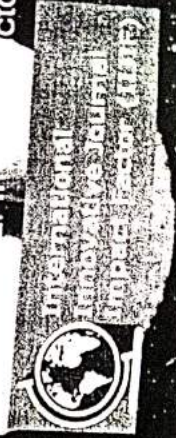 International
Innovative Journal
Impact Factor (IIJIF)